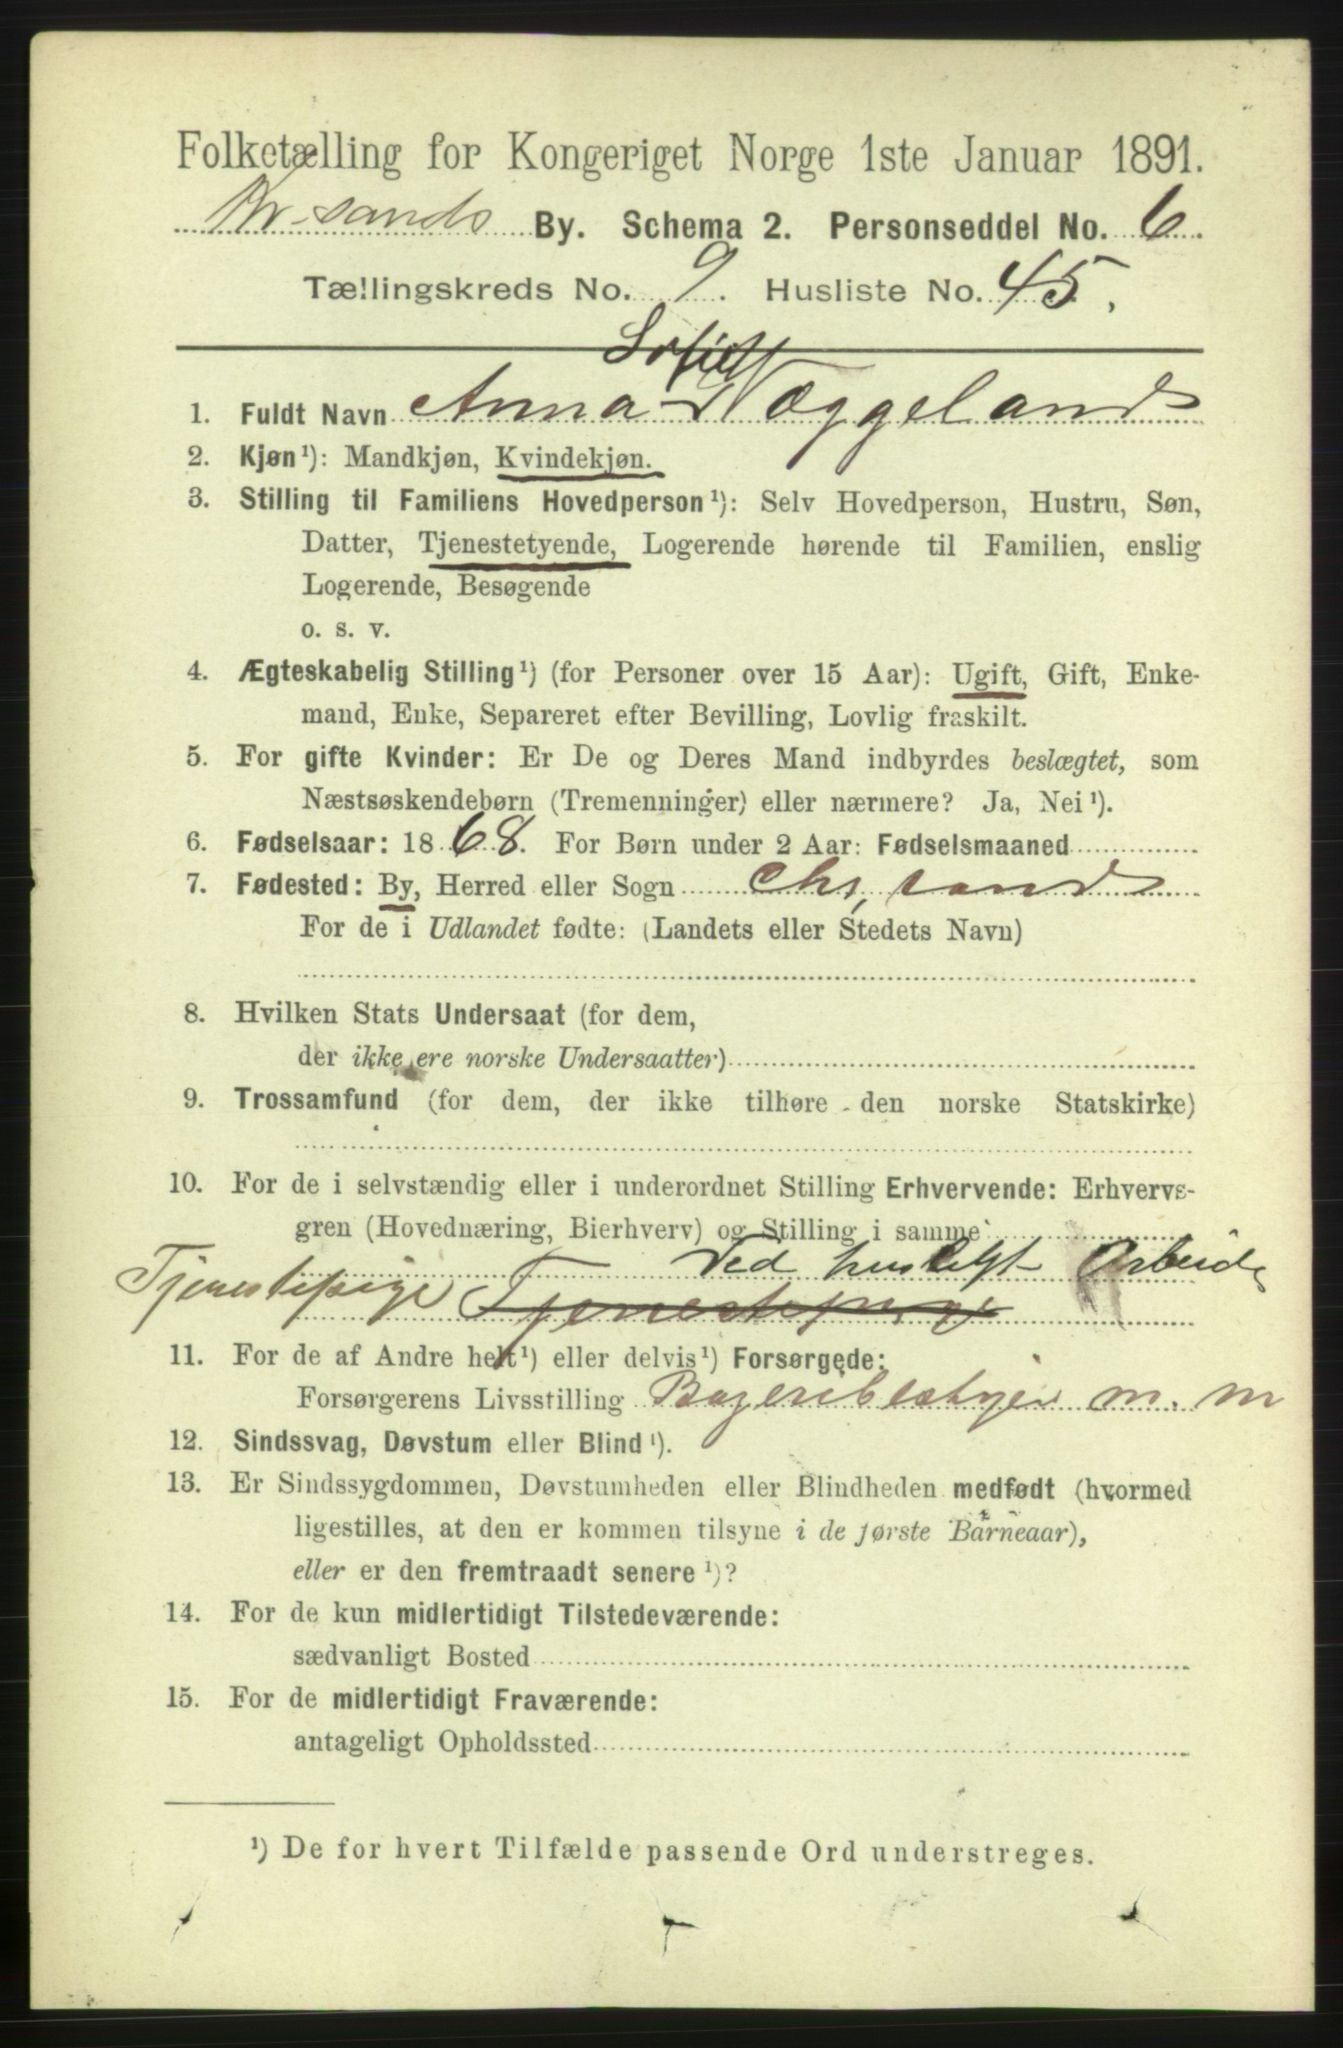 Folketælling for Kongeriget Norge 1ste Januar 1891.
Kr.sands By. Schema 2. Personseddel No. 6.
Tællingskreds No. 9. Husliste No. 45.
Sofie
1. Fuldt Navn Anna Væggeland
2. Kjøn¹): Mandkjøn, Kvindekjøn.
3. Stilling til Familiens Hovedperson¹): Selv Hovedperson, Hustru, Søn,
Datter, Tjenestetyende, Logerende hørende til Familien, enslig
Logerende, Besøgende
o. s. v.
4. Ægteskabelig Stilling¹) (for Personer over 15 Aar): Ugift, Gift, Enke-
mand, Enke, Separeret efter Bevilling, Lovlig fraskilt.
5. For gifte Kvinder: Er De og Deres Mand indbyrdes beslægtet, som
Næstsøskendebørn (Tremenninger) eller nærmere? Ja, Nei¹).
6. Fødselsaar: 1868. For Børn under 2 Aar: Fødselsmaaned
7. Fødested: By, Herred eller Sogn Chr,sand
For de i Udlandet fødte: (Landets eller Stedets Navn)
8. Hvilken Stats Undersaat (for dem,
der ikke ere norske Undersaatter)
9. Trossamfund (for dem, der ikke tilhøre den norske Statskirke)
10. For de i selvstændig eller i underordnet Stilling Erhvervende: Erhvervs-
gren (Hovednæring, Bierhverv) og Stilling i samme
Ved husligt Arbeide
Tjenestepige Tjenestepige
11. For de af Andre helt¹) eller delvis¹) Forsørgede:
Forsørgerens Livsstilling Bageribestyer m. m
12. Sindssvag, Døvstum eller Blind¹).
13. Er Sindssygdommen, Døvstumheden eller Blindheden medfødt (hvormed
ligestilles, at den er kommen tilsyne i de første Barneaar),
eller er den fremtraadt senere¹)?
14. For de kun midlertidigt Tilstedeværende:
sædvanligt Bosted
15. For de midlertidigt Fraværende:
antageligt Opholdssted
¹) De for hvert Tilfælde passende Ord understreges.